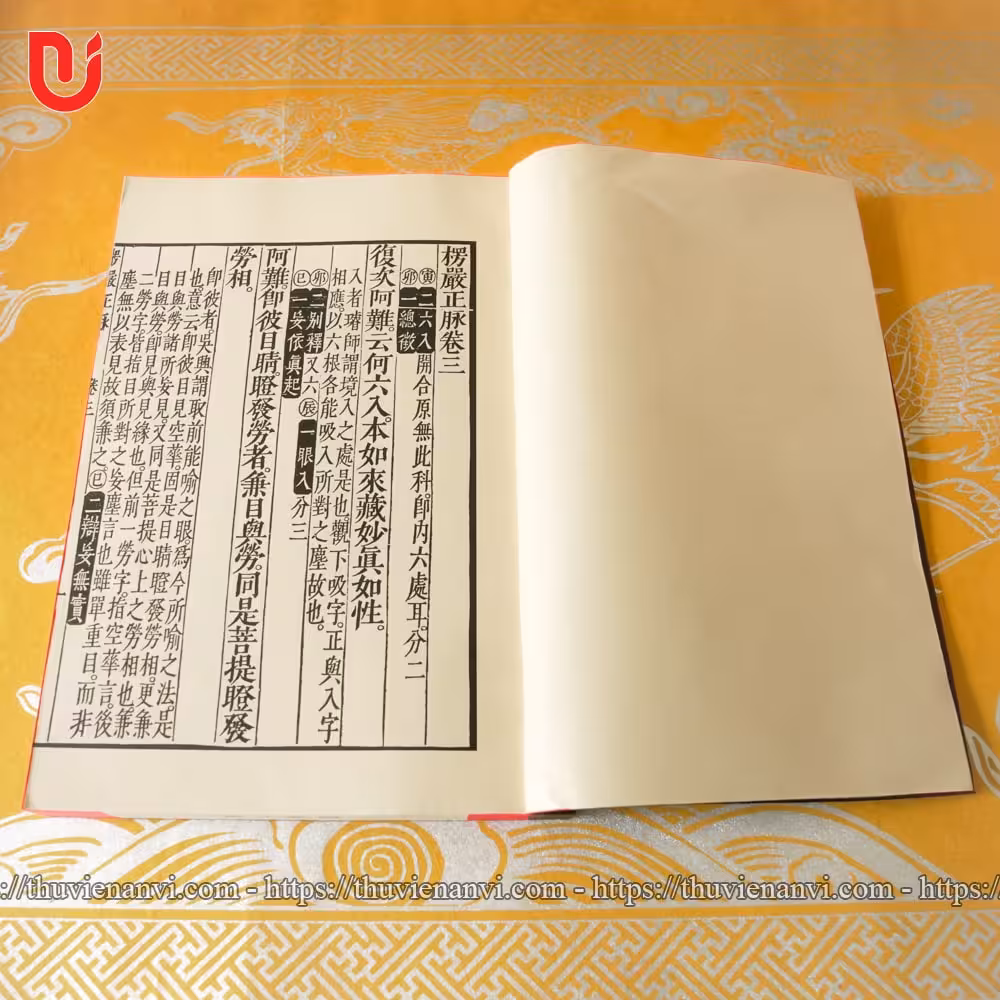 楞嚴正脉卷三
寅二六入開合原無此科即內六處耳。分二
卯一總徵
復次阿難。云何六入。本如來藏妙眞如性。
入者璿師謂境入之處是也。觀下吸字。正與入字
相應。以六根各能吸入所對之塵故也。
卯二別釋又六辰一眼入分三
巳一妄依眞起
阿難即彼目睛。瞪發勞者。兼目與勞。同是菩提瞪發
勞相。
即彼者吳興謂取前能喻之眼。爲今所喻之法。是
也。意云即彼目見空華。固是目睛瞪發勞相。更兼
目與勞諸所妄見。又同是菩提心上之勞相也。兼
二勞字。皆指見與見緣也。但前一勞字。指空華言。後
塵無以表見故須兼之巳二辯妄無實
楞嚴正脉 卷三 一
https://thuvienanvi.com - https://thuvienanvi.com - https://thuvienanvi.com - https://